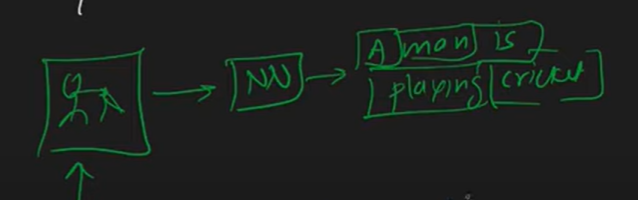 NN
A man is
playing cricket